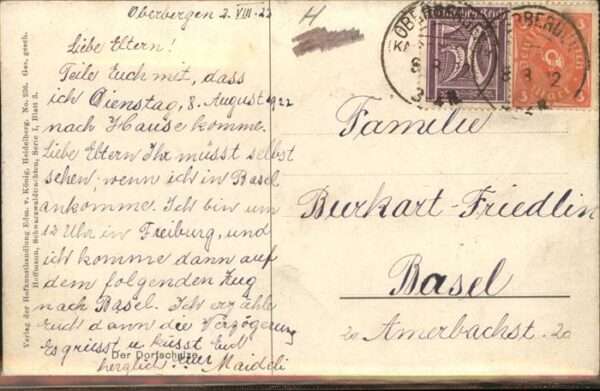 Oberbergen 2. VIII - 22
Liebe Eltern!
Teile Euch mit, dass
ich Dienstag, 8. August 1922
nach Hause komme.
Liebe Eltern Ihr müsst selbst
sehen, wenn ich in Basel
ankomme. Ich bin um
12 Uhr in Freiburg, und
ich komme dann auf
dem folgenden Zug
nach Basel. Ich erzähle
Euch dann die Verzögerung
Es grüsst u küsst Euch
herzlich Euer Maideli
Der Dorfschulze
Verlag der Hofkunsthandlung Edm. v. König, Heidelberg. No. 236. Ges. gesch.
Hoffmann, Schwarzwaldtrachten, Serie I, Blatt 3.
H
Familie
Burkart-Friedlin
Basel
20 Amerbachst. 20